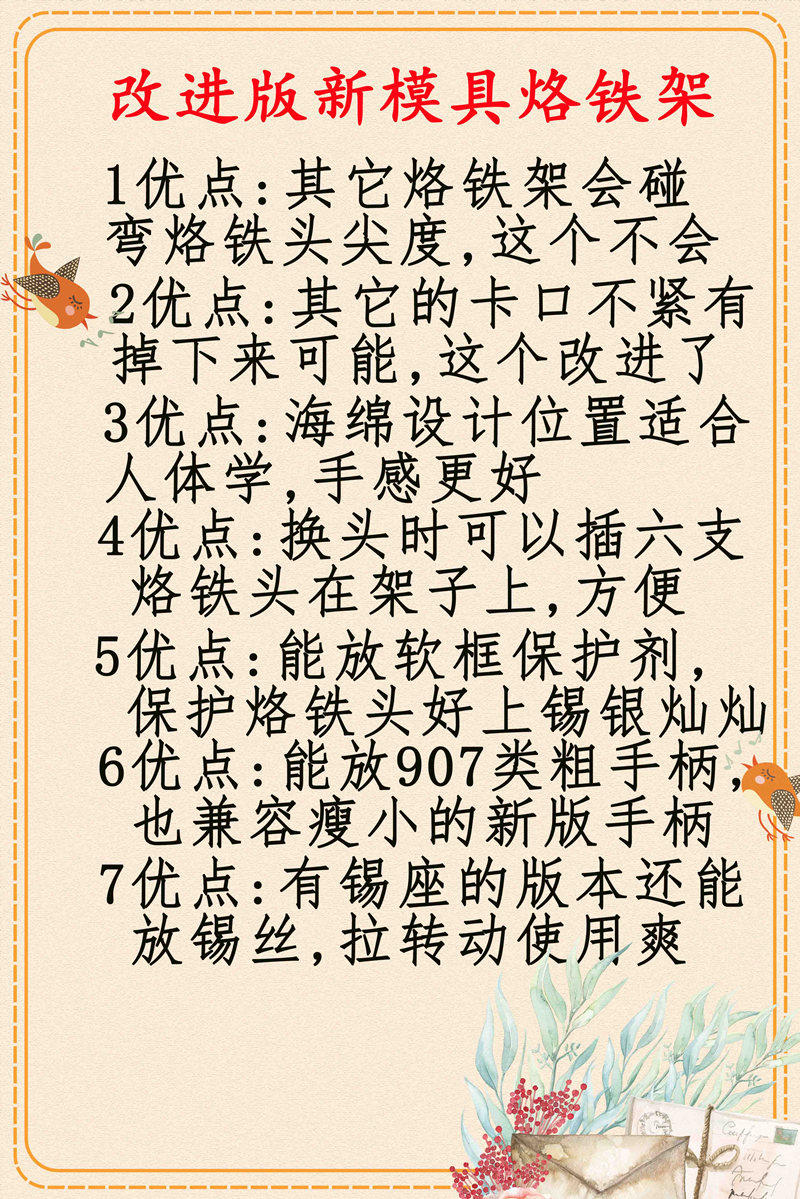 改进版新模具烙铁架
1优点:其它烙铁架会碰
弯烙铁头尖度,这个不会
2优点:其它的卡口不紧有
掉下来可能,这个改进了
3优点:海绵设计位置适合
人体学,手感更好
4优点:换头时可以插六支
烙铁头在架子上,方便
5优点:能放软框保护剂,
保护烙铁头好上锡银灿灿
6优点:能放907类粗手柄,
也兼容瘦小的新版手柄
7优点:有锡座的版本还能
放锡丝,拉转动使用爽